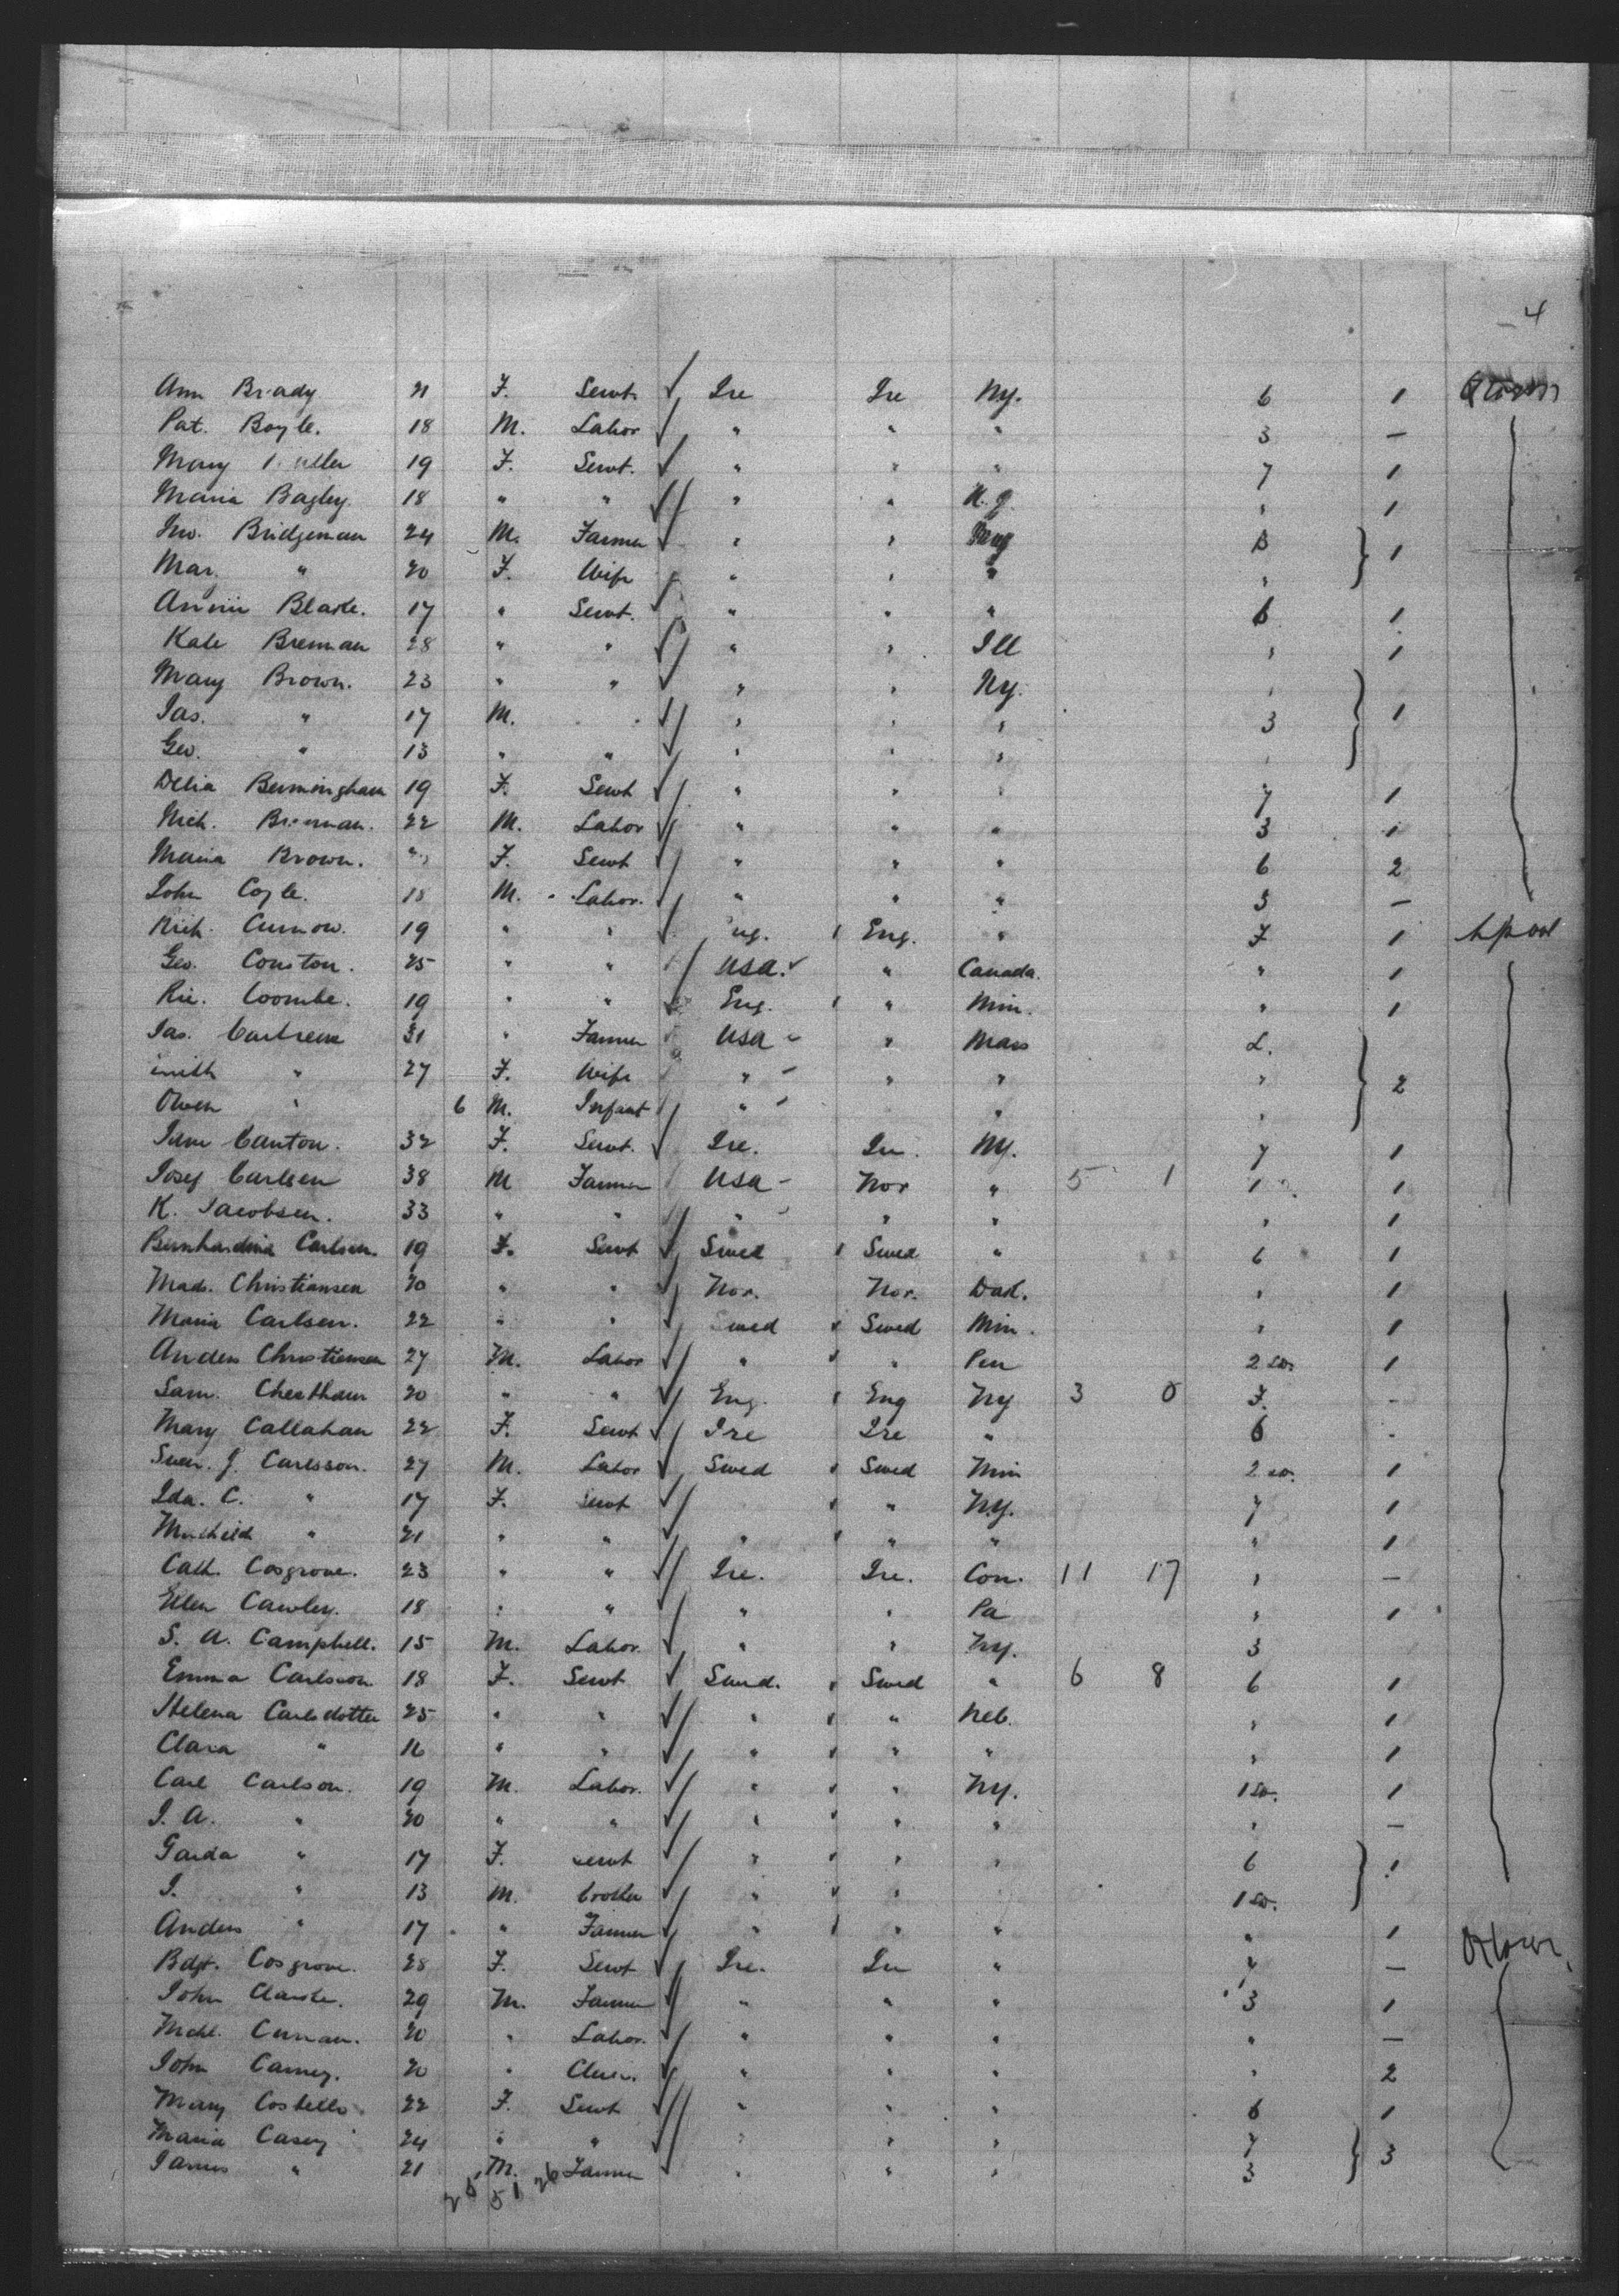 4
Ann Brady 21 F. Servt. Ire Ire Ny. 6 1
Pat. Boyle. 18 M. Labor " " " 3 —
Mary 19 F. Servt. " " " 7 1
Maria Bagley. 18 " " " " N.J. " 1
Jno. Bridgeman 24 M. Farmer " " 1
Mar. " 20 F. Wife " " " "
Annie Blake. 17 " Servt. " " " 6 1
Kate Brennan 28 " " " " Ill " 1
Mary Brown. 23 " " " " Ny. " 1
Jas. " 17 M. " " " " 3
Geo. " 13 " " " " " "
Delia Bermingham 19 F. Servt " " " 7 1
Mich. Brennan. 22 M. Labor " " " 3 1
Maria Brown. " F. Servt " " " 6 2
John Coyle. 18 M. Labor. " " " 3 —
Rich. Curnow. 19 " " Eng. Eng. " F 1 Lpool
Geo. Couston. 25 " " USA. " Canada. " 1
Ric. Coombe. 19 " " Eng. " Min. " 1
Jas. 31 " Farmer USA " Mass L.
" 27 F. Wife " " " " 2
Owen " 6 M. Infant " " "
Jane Canton. 32 F. Servt. Ire. Ire. Ny. 7 1
Josef Carlsen 38 M Farmer USA Nor " 5 1 1 1
K. Jacobsen. 33 " " " " " " 1
Bernhardina Carlsen. 19 F. Servt Swed Swed " 6 1
Mads. Christiansen 20 " " Nor. Nor. Dak. " 1
Maria Carlsen. 22 " " Swed Swed Min. " 1
Anders Christiensen 27 M. Labor " " Pen 2 so. 1
Sam. Cheetham 20 " " Eng. Eng Ny 3 0 F. -
Mary Callahan 22 F. Servt Ire Ire " 6 -
Sven. J. Carlsson. 27 M. Labor Swed Swed Min 2 so. 1
Ida. C. " 17 F. Servt " Ny. 7 1
" 21 " " " " " " 1
Cath. Cosgrove. 23 " " Ire. Ire. Con. 11 17 " —
Ellen Cawley. 18 " " " " Pa " 1
S. A. Campbell. 15 M. Labor. " " Ny. 3
Emma Carlsson 18 F. Servt Swed. Swed " 6 8 6 1
Helena Carlsdotter 25 " " " " Neb. " 1
Clara " 16 " " " " " " 1
Carl Carlson. 19 M. Labor. " " Ny. 1 so. 1
J. A. " 20 " " " " " " —
Gerda " 17 F. Servt " " " 6 1
J. " 13 M. brother " " 1 so.
Anders " 17 " Farmer " " " " 1
Bdgt. Cosgrove. 28 F. Servt Ire. Ire " 7 —
John Clarke. 29 M. Farmer " " " 3 1
Mchl. Curran. 20 " Labor. " " " " —
John Carney. 20 " Clerk. " " " " 2
Mary Costello. 22 F. Servt " " " 6 1
Maria Casey 24 " " " " " 7 3
James " 21 M. Farmer " " " 3
25 51 26